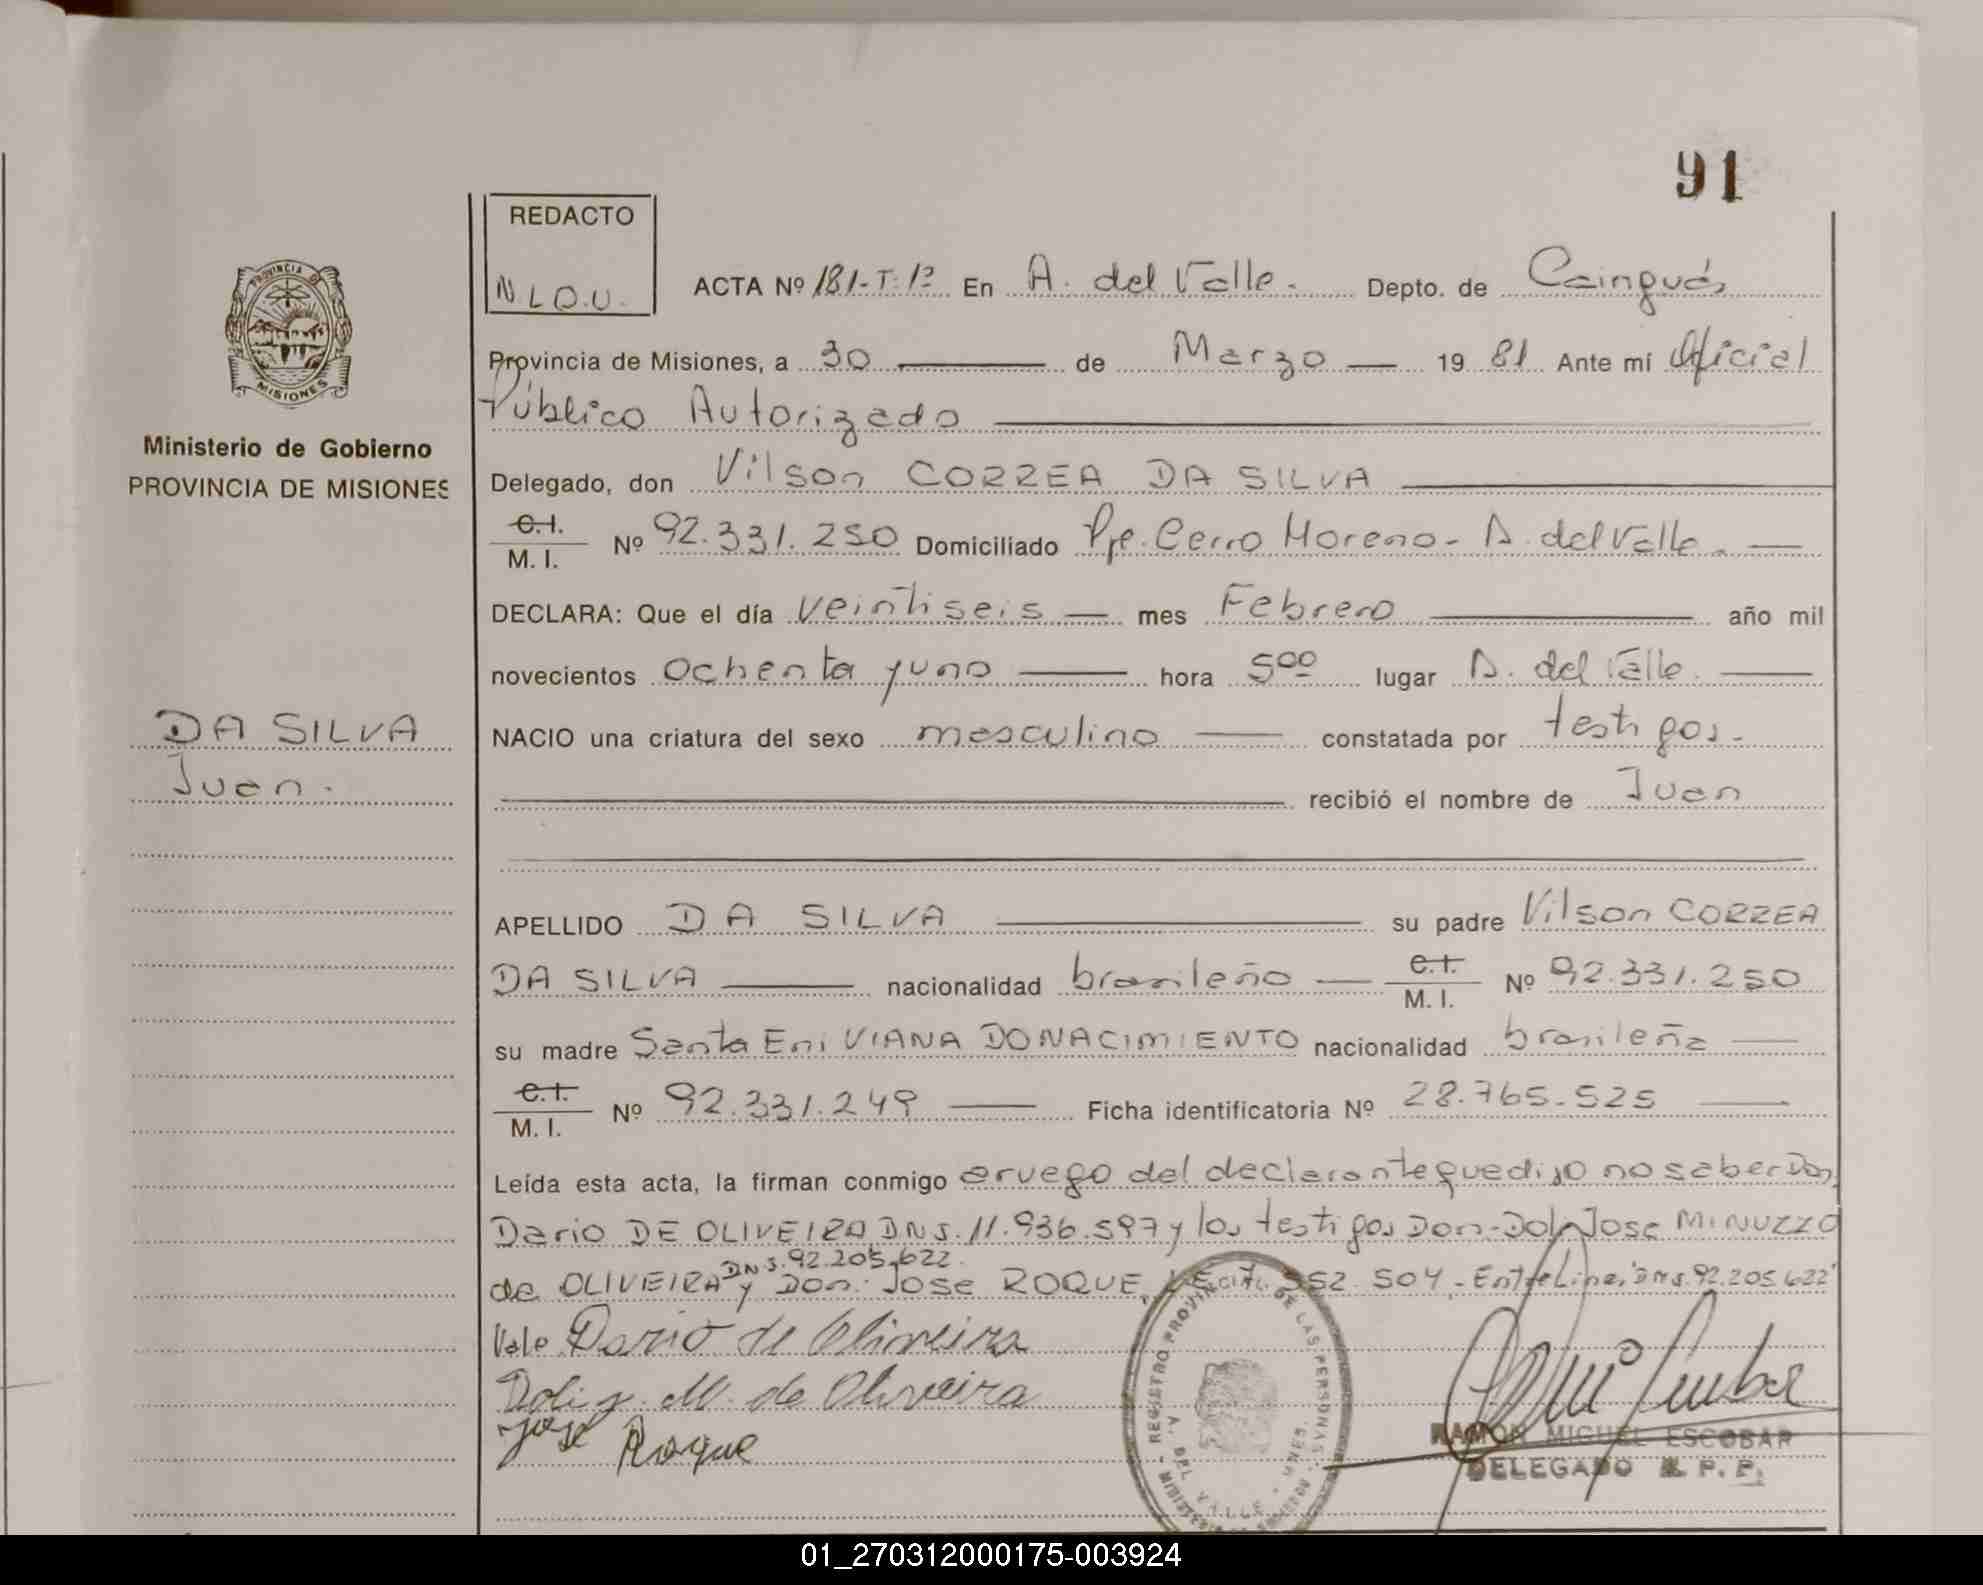 91
REDACTO
N.L.D.U.
ACTA Nº 181-T:1º En A. del Valle. Depto. de Cainguás
PROVINCIA DE MISIONES
Provincia de Misiones, a 30 de Marzo 19 81 Ante mí Oficial
Público Autorizado
Ministerio de Gobierno
PROVINCIA DE MISIONES
Delegado, don Vilson CORREA DA SILVA
C.I. M. I. Nº 92.331.250 Domiciliado Pje. Cerro Moreno - A. del Valle.
DECLARA: Que el día veintiseis mes Febrero año mil
novecientos ochenta y uno hora 500 lugar A. del Valle.
DA SILVA
Juan.
NACIO una criatura del sexo masculino constatada por testigos.
recibió el nombre de Juan
APELLIDO DA SILVA su padre Vilson CORREA
DA SILVA nacionalidad brasileño C.I. M. I. Nº 92.331.250
su madre Santa Eni VIANA DONACIMIENTO nacionalidad brasileña
C.I. M. I. Nº 92.331.249 Ficha identificatoria Nº 28.765.525
Leída esta acta, la firman conmigo a ruego del declarante que dijo no saber Don
Dario DE OLIVEIRA, DNJ. 11.936.597 y los testigos Don. Jose MINUZZO
DNJ. 92.205.622
de OLIVEIRA y Don: Jose ROQUE, 352.504 - Entre Linea "DNJ. 92.205.622"
Vale Dario de Oliveira
M. de Oliveira
Jose Roque
REGISTRO PROVINCIAL DE LAS PERSONAS
A. DEL VALLE - MNES.
RAMON MIGUEL ESCOBAR
DELEGADO R. P. P.
01_270312000175-003924